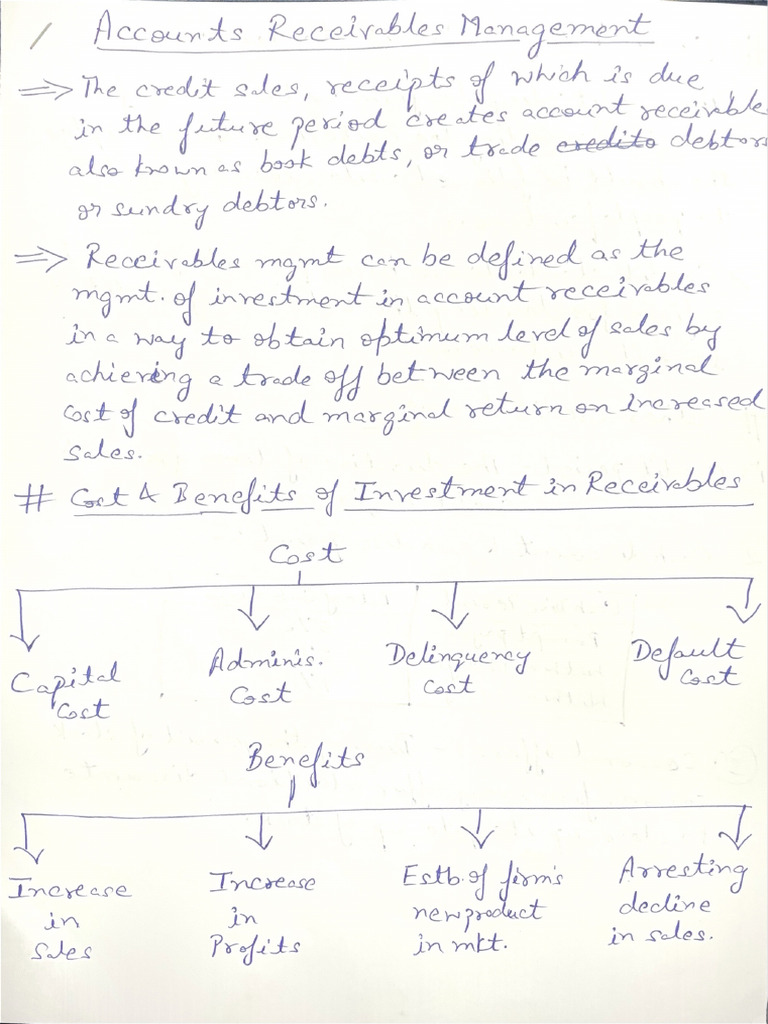 Accounts Receivables Management
⇒ The credit sales, receipts of which is due
in the future period creates account receivable
also known as book debts, or trade credito debtors
or sundry debtors.
⇒ Receivables mgmt can be defined as the
mgmt. of investment in account receivables
in a way to obtain optimum level of sales by
achieving a trade off between the marginal
cost of credit and marginal return on increased
sales.
# Cost & Benefits of Investment in Receivables
Cost
Capital Cost
Adminis. Cost
Delinquency Cost
Default Cost
Benefits
Increase in Sales
Increase in Profits
Estb. of firm's new product in mkt.
Arresting decline in sales.